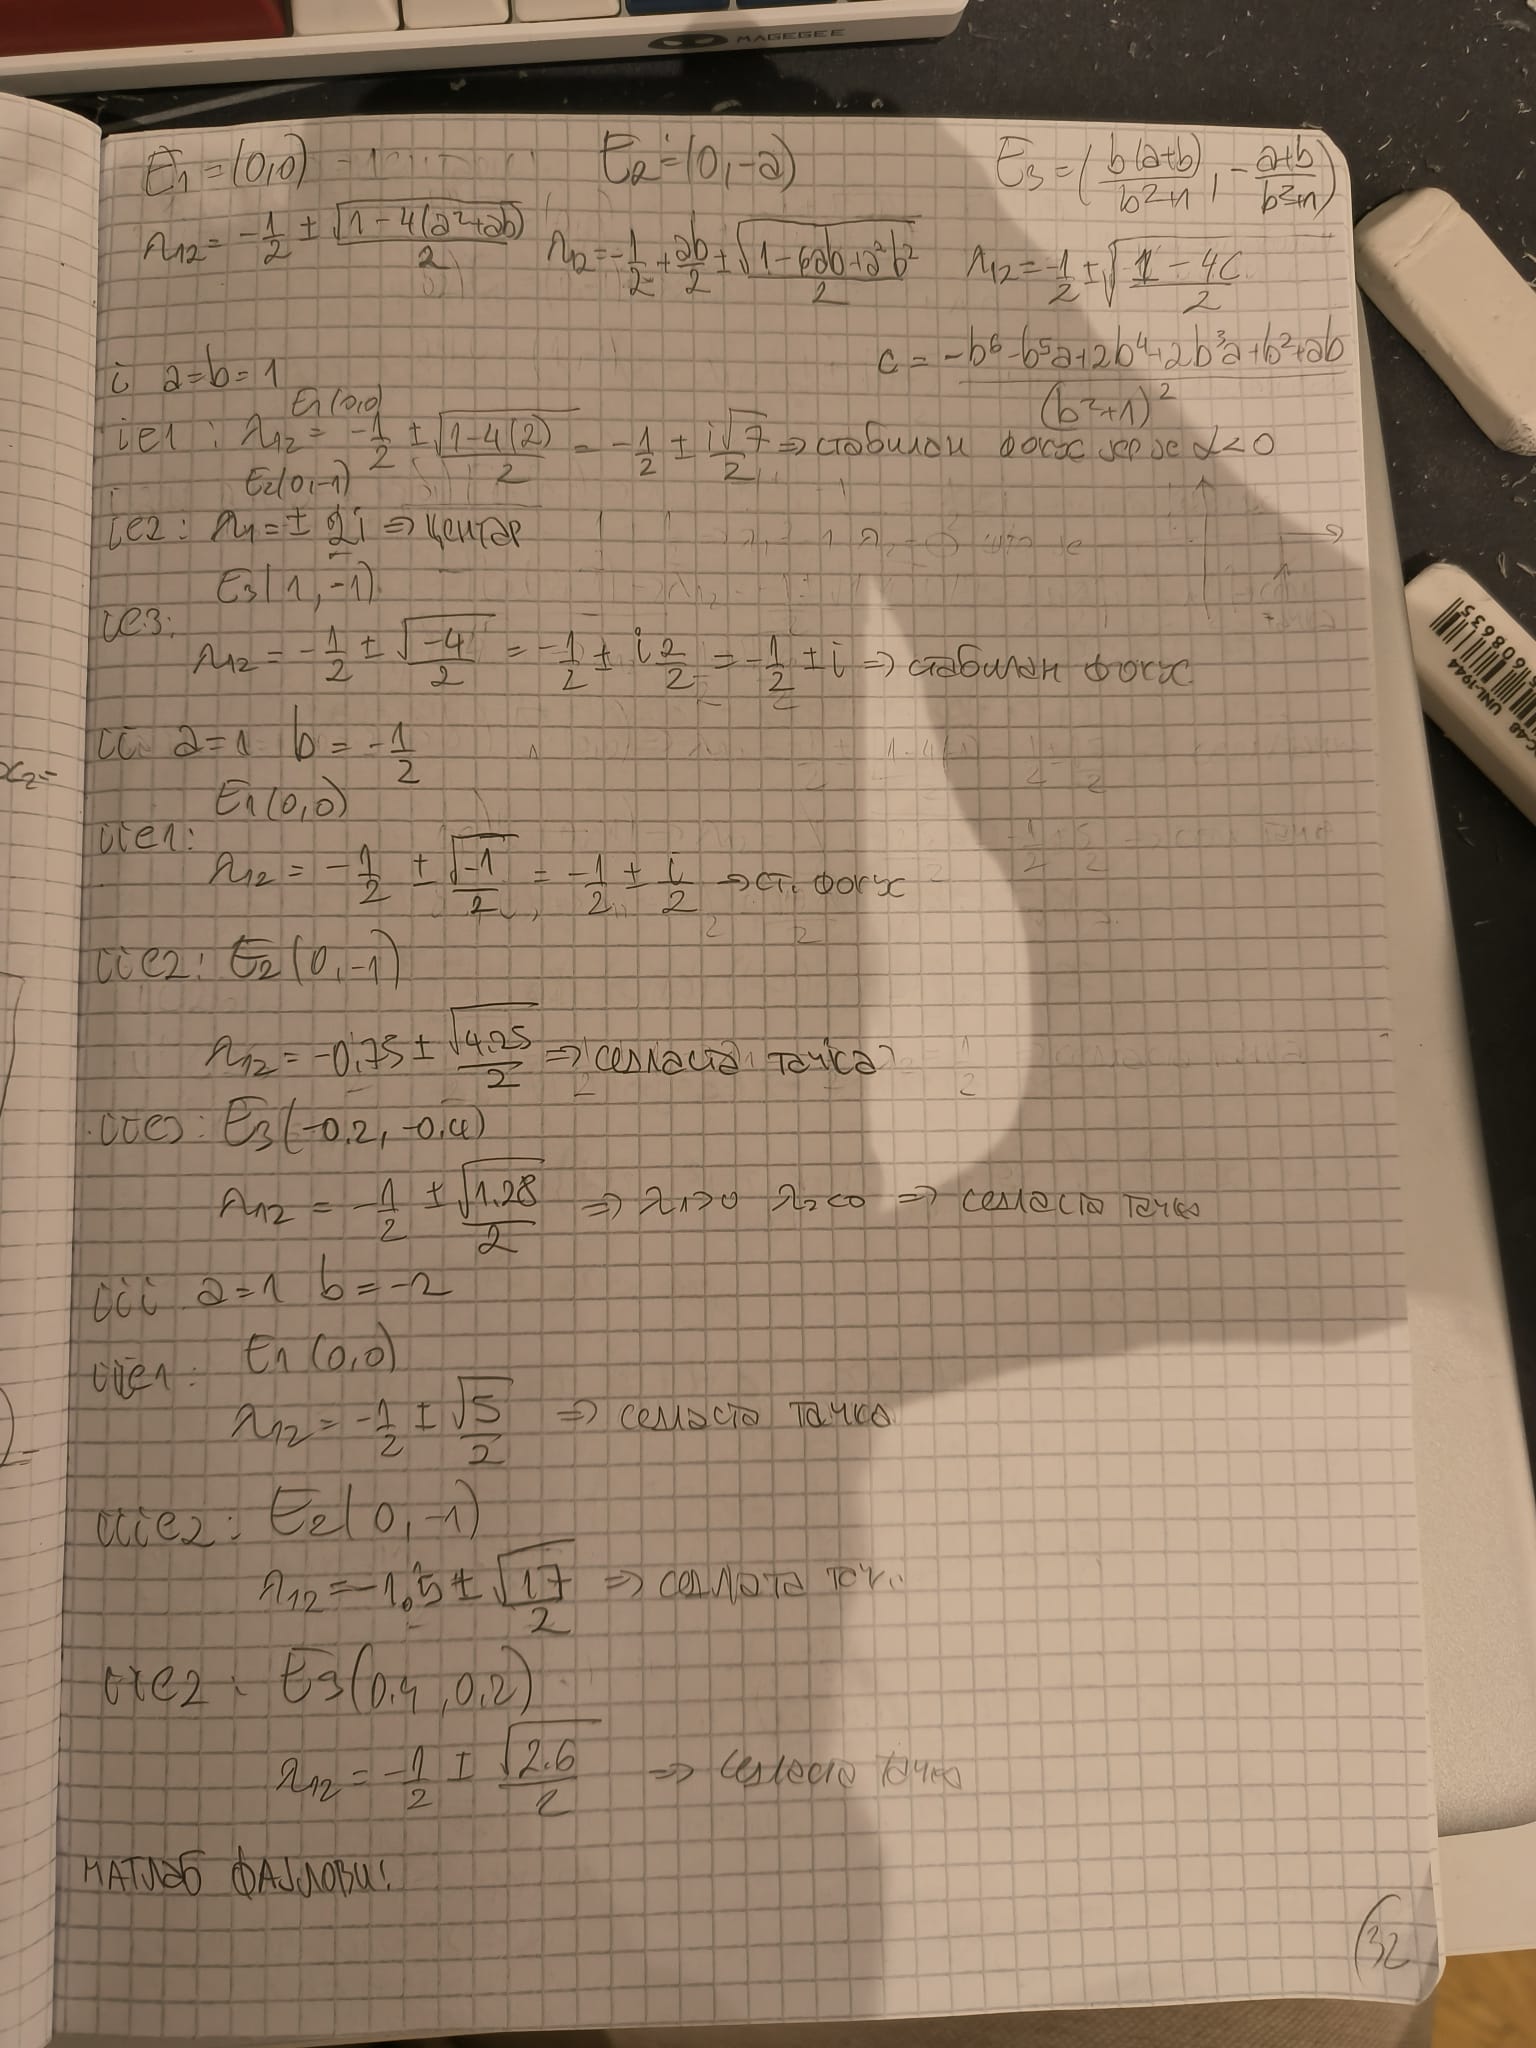 MAGEGEE
E₁ = (0,0) E₂ = (0,-a) E₃ = (b(a+b)/(b²+1), -(a+b)/(b²+1))
λ₁₂ = -1/2 ± √(1-4(a²+ab))/2 λ₁₂ = -1/2 + ab/2 ± √(1-6ab+a²b²)/2 λ₁₂ = -1/2 ± √(1-4c)/2
c = (-b⁶-b⁵a+2b⁴+2b³a+b²+ab)/(b²+1)²
i a=b=1
E₁(0,0)
ie1: λ₁₂ = -1/2 ± √(1-4(2))/2 = -1/2 ± i√7/2 ⇒ стабилан фокус јер је α<0
E₂(0,-1)
ie2: λ₁ = ± 2i ⇒ центар
E₃(1,-1)
ie3:
λ₁₂ = -1/2 ± √-4/2 = -1/2 ± i 2/2 = -1/2 ± i ⇒ стабилан фокус
ii a=1 b = -1/2
E₁(0,0)
iie1:
λ₁₂ = -1/2 ± √-1/2 = -1/2 ± i/2 ⇒ ст. фокус
iie2: E₂(0,-1)
λ₁₂ = -0.75 ± √4.25/2 ⇒ седласта тачка
iie3: E₃(-0.2, -0.4)
λ₁₂ = -1/2 ± √1.28/2 ⇒ λ₁>0 λ₂<0 ⇒ седласта тачка
iii a=1 b=-2
E₁(0,0)
iiie1:
λ₁₂ = -1/2 ± √5/2 ⇒ седласта тачка
iiie2: E₂(0,-1)
λ₁₂ = -1.5 ± √17/2 ⇒ седлата тач.
iiie2: E₃(0.4,0.2)
λ₁₂ = -1/2 ± √2.6/2 ⇒ седласта тачка
МАТЛАБ ФАЈЛОВИ!
32
608635
UNL-1944